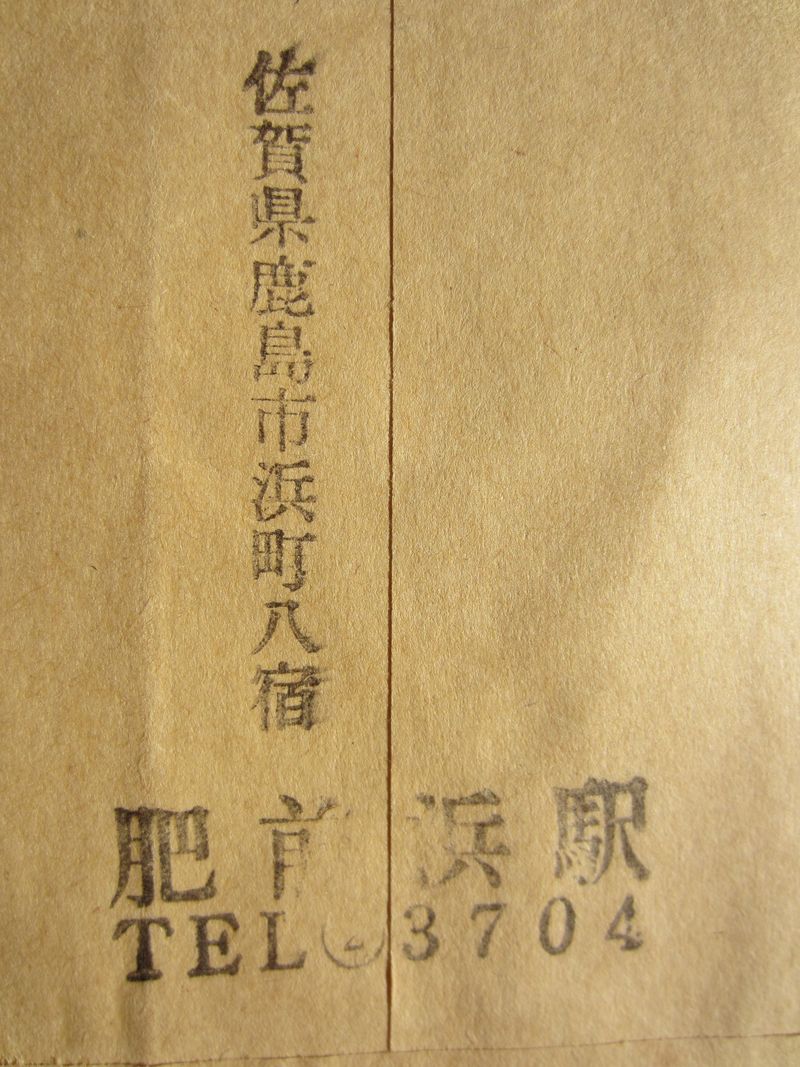 佐賀県鹿島市浜町八宿
肥前浜駅
TEL②3704